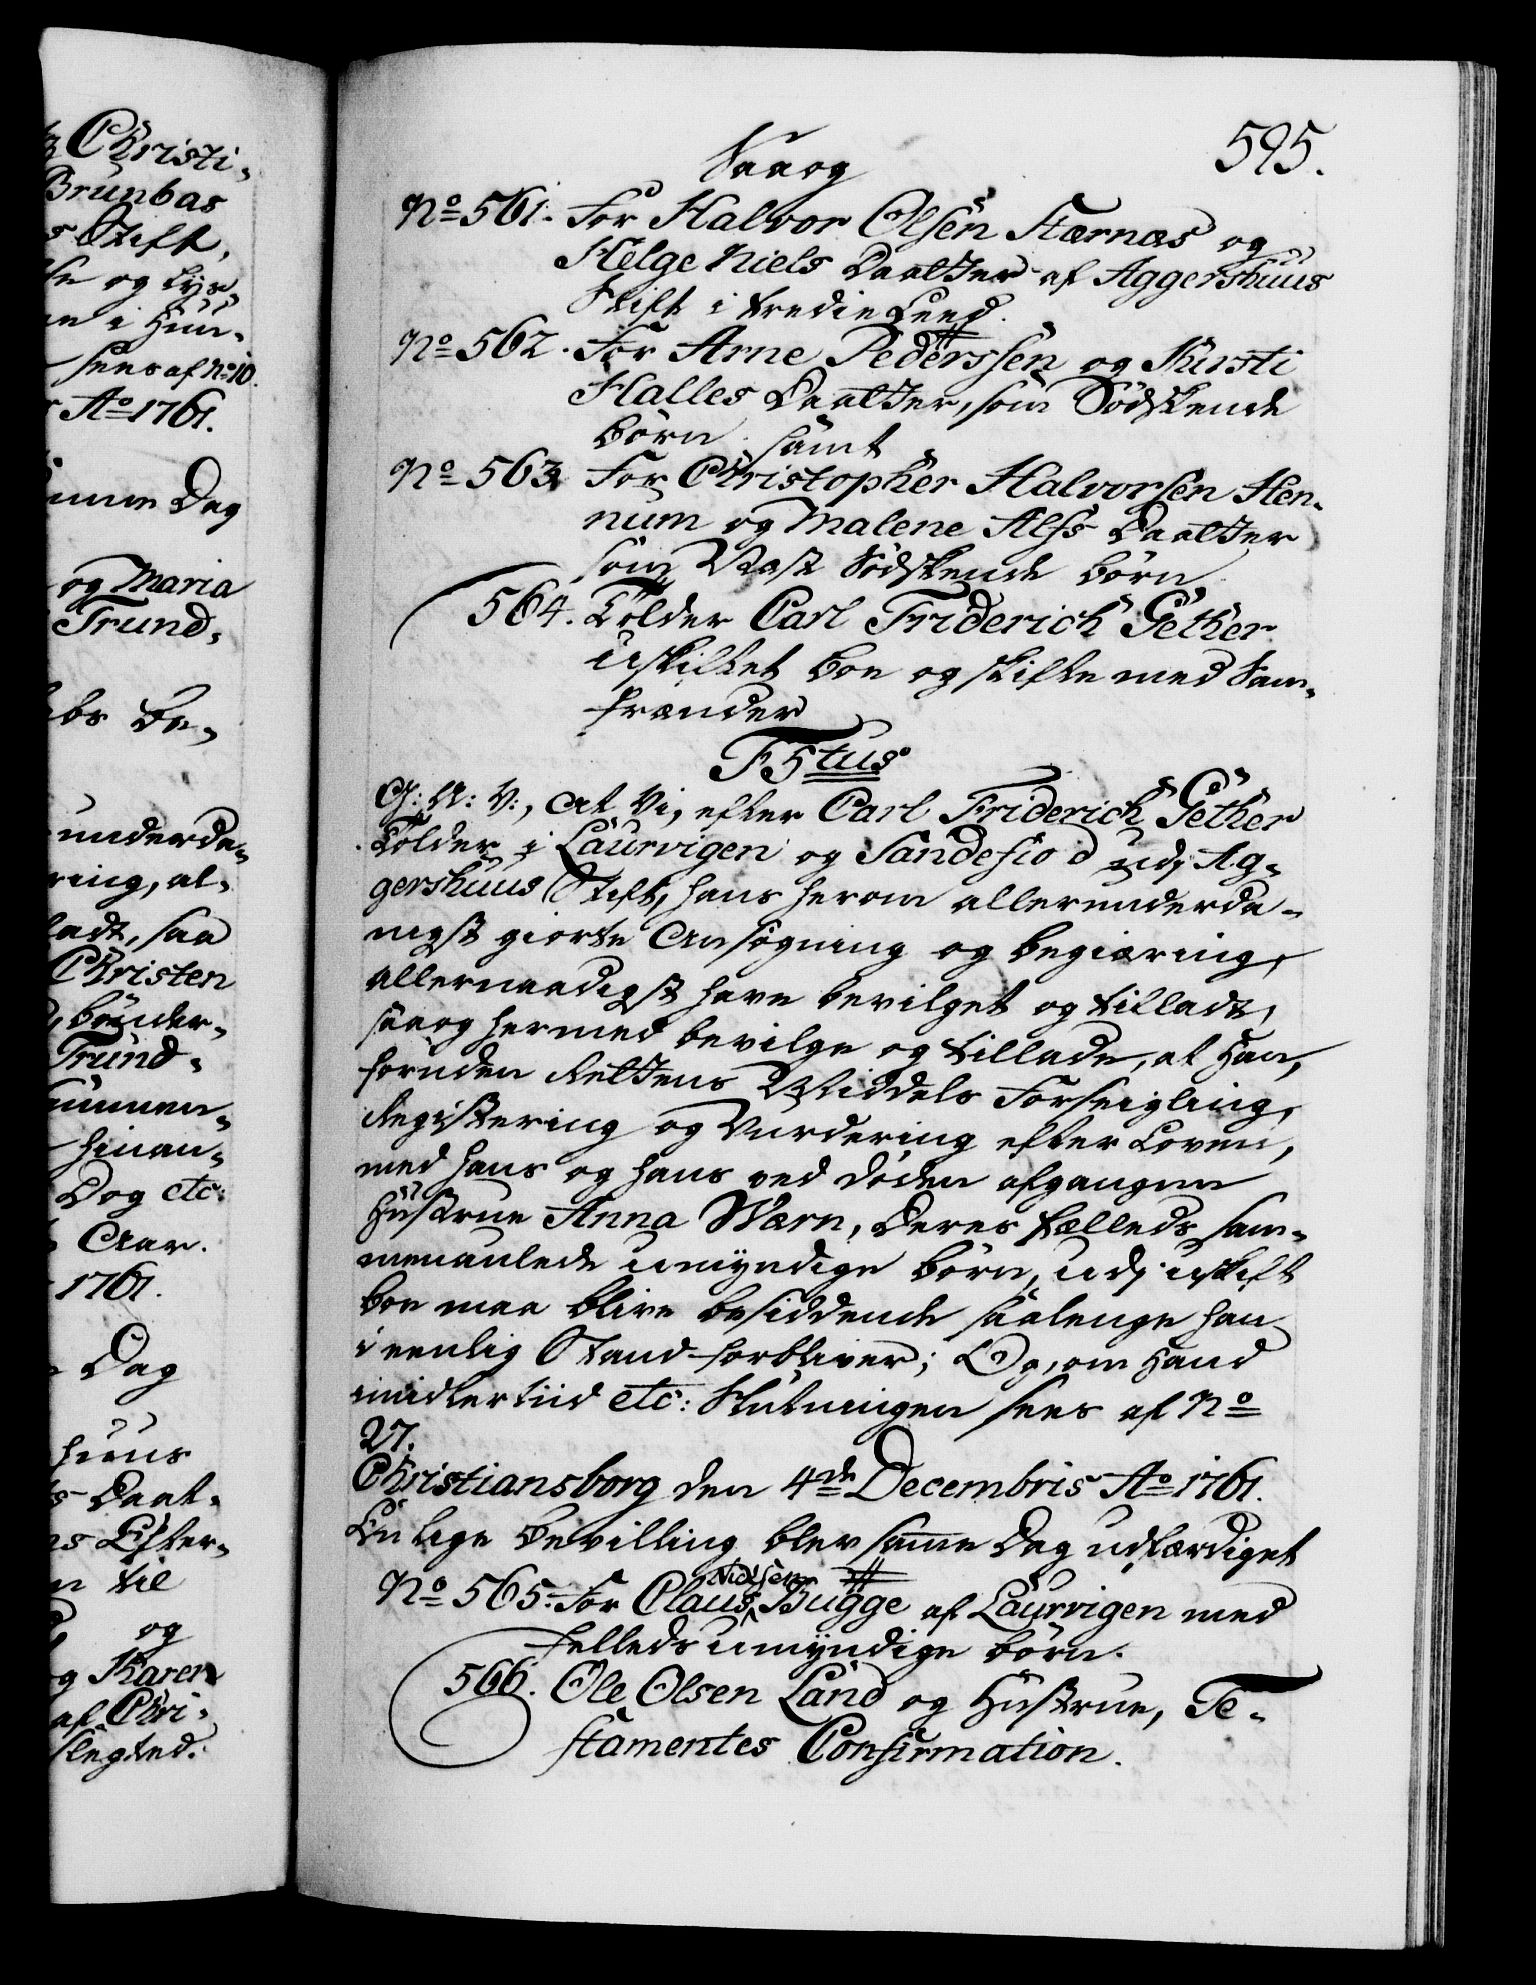 595.
Saaog
No 561. For Halvor Olsen Stærnæs og
Helge Niels Daatter af Aggershuus
Stift i tredie Leed.
No 562. For Arne Pederssen og Kirsti
Halles Daatter, som Södskende
börn samt
No 563. For Christopher Halvorsen Hen-
num og Malene Alfs Daatter
som Næst Södskende börn
564. Tolder Carl Friderich Gether
uskiftet boe og skifte med Sam-
frænder
F5tus
G: A: V:, At Vi, efter Carl Friderich Gether
Tolder i Laurvigen og Sandefiod udj Ag-
gershuus Stift, hans herom allerunderda-
nigst giorte Ansögning og begiæring,
allernaadigst have bevilget og tilladt,
saaog hermed bevilge og tillade, at Han,
foruden Rettens Middels Forseigling,
Registering og Vurdering efter Loven,
med hans og hans ved döden afgangne
Hustrue Anna Wærn, deres fælleds sam-
menavlede umyndige börn, udj uskift
boe maa blive besiddende saalenge han
i eenlig Stand forbliver; Og, om Hand
imidlertiid etc: Slutningen sees af No
27.
Christiansborg den 4de Decembris Ao 1761.
En lige Bevilling blev samme Dag udfærdiget
No 565. For Claus Nielsen Bugge af Laurvigen med
felleds umyndige börn.
566. Ole Olsen Land og Hustrue, Te-
stamentes Confirmation.
Christi-
Brunbas
Stift,
og lyse
i Huu-
sees af No 10.
Ao 1761.
Dag
og Maria
Trund-
be-
underda-
ring, al-
ladt, saa
Christen
bönder-
Trund-
hinan-
Dog etc:
Aar.
1761.
Dag
huus
Daat-
Efter-
til
og
Karen
af Chri-
slegted.